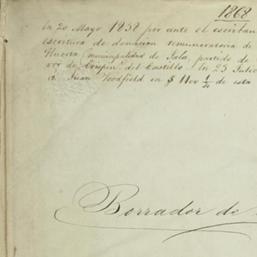 1868
En 20 Mayo 1858 por ante el escriban
escritura de donacion remuneratoria de
Huerta municipalidad de Sala, partido de
del Castillo. En 25 Julio
Juan Woodfield en $ 1100 de esta
Borrador de